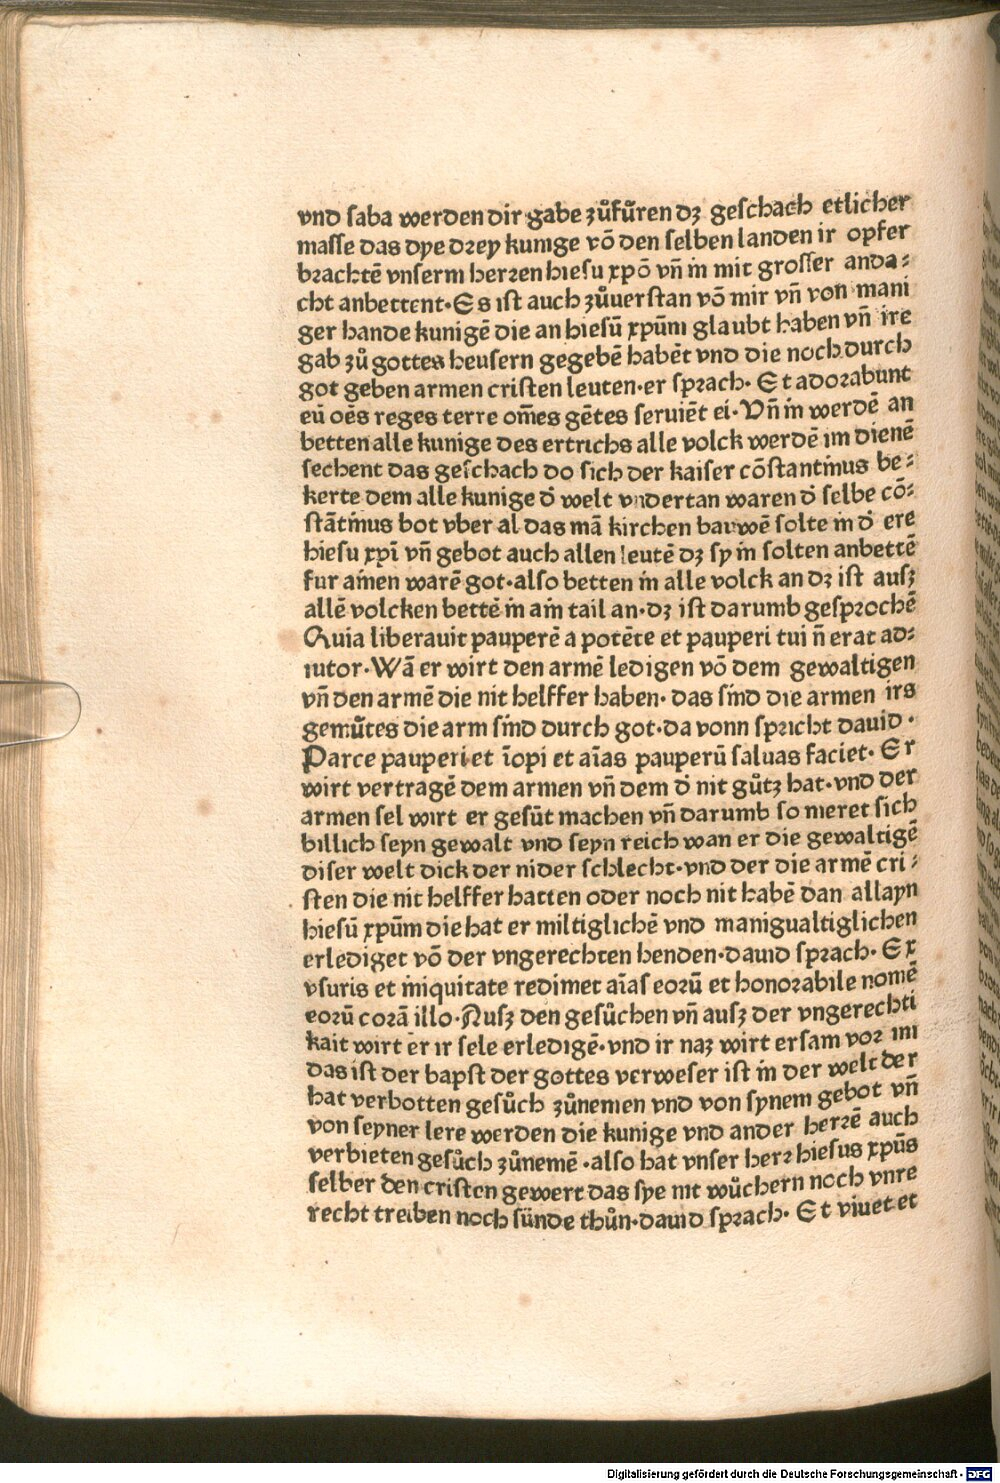 vnd saba werden dir gabe zůfůren dz geschach etlicher
masse das dye drey kunige võ den selben landen ir opfer
brachtẽ vnserm herren hiesu xpõ vñ in mit grosser anda⸗
cht anbettent·Es ist auch zůuerstan võ mir vñ von mani
ger hande kunigẽ die an hiesũ xpũm glaubt haben vñ ire
gab zů gottes heusern gegebẽ habẽt vnd die noch durch
got geben armen cristen leuten·er sprach· Et adorabunt
eũ oẽs reges terre om̃es gẽtes seruiẽt ei·Vñ in werdẽ an
betten alle kunige des ertrichs alle volck werdẽ im dienẽ
sechent das geschach do sich der kaiser cõstantinus be⸗
kerte dem alle kunige d̉ welt vndertan waren d̉ selbe cõ⸗
stãtinus bot vber al das mã kirchen bauwẽ solte in d̉ ere
hiesu xpĩ vñ gebot auch allen leutẽ dz sy in solten anbettẽ
fur ainen warẽ got·also betten in alle volck an dz ist ausz
allẽ volcken bettẽ in ain tail an·dz ist darumb gesprochẽ
Quia liberauit pauperẽ a potẽte et pauperi tui ñ erat ad⸗
iutor·Wã er wirt den armẽ ledigen võ dem gewaltigen
vñ den armẽ die nit helffer haben· das sind die armen irs
gemůtes die arm sind durch got·da vonn spricht dauid ·
Parce pauperi et ĩopi et aĩas pauperũ saluas faciet· Er
wirt vertragẽ dem armen vñ dem d̉ nit gůtz hat·vnd der
armen sel wirt er gesũt machen vñ darumb so meret sich
billich seyn gewalt vnd seyn reich wan er die gewaltigẽ
diser welt dick der nider schlecht·vnd der die armẽ cri⸗
sten die nit helffer hatten oder noch nit habẽ dan allayn
hiesũ xpũm die hat er miltiglichẽ vnd manigualtiglichen
erlediget võ der vngerechten henden·dauid sprach· Ex
vsuris et iniquitate redimet aĩas eorũ et honorabile nomẽ
eorũ corã illo·Ausz den gesůchen vñ ausz der vngerechti
kait wirt er ir sele erledigẽ·vnd ir naz wirt ersam vor im
das ist der bapst der gottes verweser ist in der welt der
hat verbotten gesůch zůnemen vnd von synem gebot vñ
von seyner lere werden die kunige vnd ander herrẽ auch
verbieten gesůch zůnemẽ ·also hat vnser herr hiesus xpũs
selber den cristen gewert das sye nit wůchern noch vnre
recht treiben noch sünde thůn·dauid sprach· Et viuet et
Digitalisierung gefördert durch die Deutsche Forschungsgemeinschaft - DFG